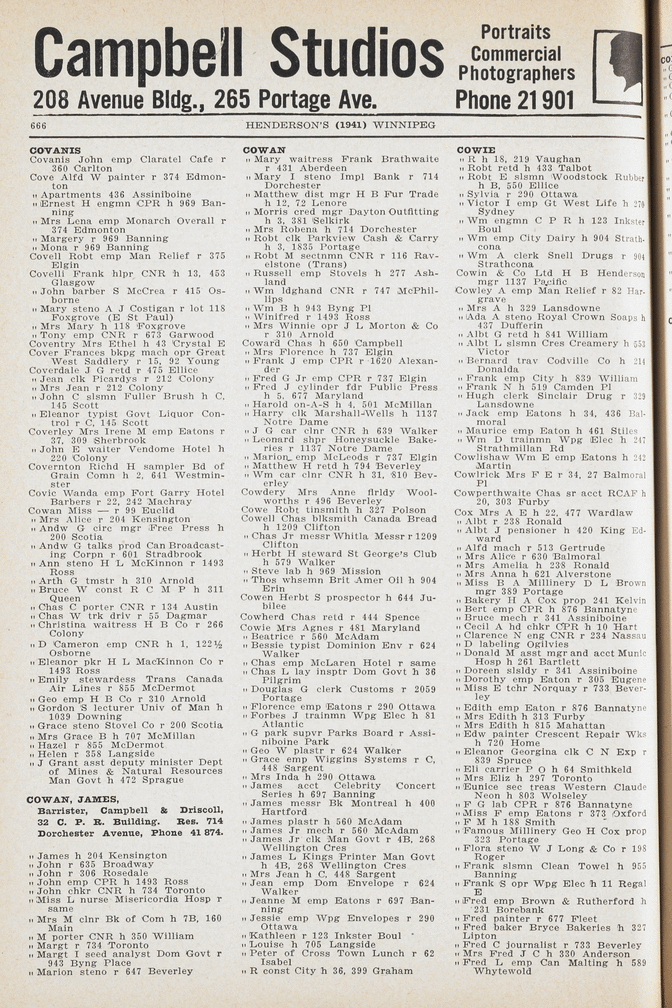 Campbell Studios
Portraits
Commercial
Photographers
208 Avenue Bldg., 265 Portage Ave.
Phone 21 901
666
HENDERSON'S (1941) WINNIPEG
COVANIS
Covanis John emp Claratel Cafe r
360 Carlton
Cove Alfd W painter r 374 Edmon-
ton
„ Apartments 436 Assiniboine
„ Ernest H engmn CPR h 969 Ban-
ning
„ Mrs Lena emp Monarch Overall r
374 Edmonton
„ Margery r 969 Banning
„ Mona r 969 Banning
Covell Robt emp Man Relief r 375
Elgin
Covelli Frank hlpr CNR h 13, 453
Glasgow
„ John barber S McCrea r 415 Os-
borne
„ Mary steno A J Costigan r lot 118
Foxgrove (E St Paul)
„ Mrs Mary h 118 Foxgrove
„ Tony emp CNR r 673 Garwood
Coventry Mrs Ethel h 43 Crystal E
Cover Frances bkpg mach opr Great
West Saddlery r 15, 92 Young
Coverdale J G retd r 475 Ellice
„ Jean clk Picardys r 212 Colony
„ Mrs Jean r 212 Colony
„ John C slsmn Fuller Brush h C,
145 Scott
„ Eleanor typist Govt Liquor Con-
trol r C, 145 Scott
Coverley Mrs Irene M emp Eatons r
37, 309 Sherbrook
„ John E waiter Vendome Hotel h
220 Colony
Covernton Richd H sampler Bd of
Grain Comn h 2, 641 Westmin-
ster
Covic Wanda emp Fort Garry Hotel
Barbers r 22, 242 Machray
Cowan Miss — r 99 Euclid
„ Mrs Alice r 204 Kensington
„ Andw G circ mgr Free Press h
200 Scotia
„ Andw G talks prod Can Broadcast-
ing Corpn r 601 Stradbrook
„ Ann steno H L McKinnon r 1493
Ross
„ Arth G tmstr h 310 Arnold
„ Bruce W const R C M P h 311
Queen
„ Chas C porter CNR r 134 Austin
„ Chas W trk driv r 55 Dagmar
„ Christina waitress H B Co r 266
Colony
„ D Cameron emp CNR h 1, 122½
Osborne
„ Eleanor pkr H L MacKinnon Co r
1493 Ross
„ Emily stewardess Trans Canada
Air Lines r 855 McDermot
„ Geo emp H B Co r 310 Arnold
„ Gordon S lecturer Univ of Man h
1039 Downing
„ Grace steno Stovel Co r 200 Scotia
„ Mrs Grace B h 707 McMillan
„ Hazel r 855 McDermot
„ Helen r 358 Langside
„ J Grant asst deputy minister Dept
of Mines & Natural Resources
Man Govt h 472 Sprague
COWAN, JAMES,
Barrister, Campbell & Driscoll,
32 C. P. R. Building. Res. 714
Dorchester Avenue, Phone 41 874.
„ James h 204 Kensington
„ John r 635 Broadway
„ John r 306 Rosedale
„ John emp CPR h 1493 Ross
„ John chkr CNR h 734 Toronto
„ Miss L nurse Misericordia Hosp r
same
„ Mrs M clnr Bk of Com h 7B, 160
Main
„ M porter CNR h 350 William
„ Margt r 734 Toronto
„ Margt I seed analyst Dom Govt r
943 Byng Place
„ Marion steno r 647 Beverley
COWAN
„ Mary waitress Frank Brathwaite
r 431 Aberdeen
„ Mary I steno Impl Bank r 714
Dorchester
„ Matthew dist mgr H B Fur Trade
h 12, 72 Lenore
„ Morris cred mgr Dayton Outfitting
h 3, 381 Selkirk
„ Mrs Robena h 714 Dorchester
„ Robt clk Parkview Cash & Carry
h 3, 1835 Portage
„ Robt M sectnmn CNR r 116 Rav-
elstone (Trans)
„ Russell emp Stovels h 277 Ash-
land
„ Wm ldghand CNR r 747 McPhil-
lips
„ Wm B h 943 Byng Pl
„ Winifred r 1493 Ross
„ Mrs Winnie opr J L Morton & Co
r 310 Arnold
Coward Chas h 650 Campbell
„ Mrs Florence h 737 Elgin
„ Frank J emp CPR r 1620 Alexan-
der
„ Fred G Jr emp CPR r 737 Elgin
„ Fred J cylinder fdr Public Press
h 5, 677 Maryland
„ Harold on-A-S h 4, 501 McMillan
„ Harry clk Marshall-Wells h 1137
Notre Dame
„ J G car clnr CNR h 639 Walker
„ Leonard shpr Honeysuckle Bake-
ries r 1137 Notre Dame
„ Marion emp McLeods r 737 Elgin
„ Matthew H retd h 794 Beverley
„ Wm car clnr CNR h 31, 810 Bev-
erley
Cowdery Mrs Anne Brldy Wool-
worths r 496 Beverley
Cowe Robt tinsmith h 327 Polson
Cowell Chas blksmith Canada Bread
h 1209 Clifton
„ Chas Jr messr Whitla Messr r 1209
Clifton
„ Herbt H steward St George's Club
h 579 Walker
„ Steve lab h 969 Mission
„ Thos whsemn Brit Amer Oil h 904
Erin
Cowen Herbt S prospector h 644 Ju-
bilee
Cowherd Chas retd r 444 Spence
Cowie Mrs Agnes r 481 Maryland
„ Beatrice r 560 McAdam
„ Bessie typist Dominion Env r 624
Walker
„ Chas emp McLaren Hotel r same
„ Chas L lay insptr Dom Govt h 36
Pilgrim
„ Douglas G clerk Customs r 2059
Portage
„ Florence emp Eatons r 290 Ottawa
„ Forbes J trainmn Wpg Elec h 81
Atlantic
„ G park supvr Parks Board r Assi-
niboine Park
„ Geo W plastr r 624 Walker
„ Grace emp Wiggins Systems r C,
448 Sargent
„ Mrs Inda h 290 Ottawa
„ James acct Celebrity Concert
Series h 697 Banning
„ James messr Bk Montreal h 400
Hartford
„ James plastr h 560 McAdam
„ James Jr mech r 560 McAdam
„ James Jr clk Man Govt r 4B, 268
Wellington Cres
„ James L Kings Printer Man Govt
h 4B, 268 Wellington Cres
„ Mrs Jean h C, 448 Sargent
„ Jean emp Dom Envelope r 624
Walker
„ Jeanne M emp Eatons r 697 Ban-
ning
„ Jessie emp Wpg Envelopes r 290
Ottawa
„ Kathleen r 123 Inkster Boul
„ Louise h 705 Langside
„ Peter of Cross Town Lunch r 62
Isabel
„ R const City h 36, 399 Graham
COWIE
„ R h 18, 219 Vaughan
„ Robt retd h 433 Talbot
„ Robt E slsmn Woodstock Rubber
h B, 550 Ellice
„ Sylvia r 290 Ottawa
„ Victor I emp Gt West Life h 270
Sydney
„ Wm engmn C P R h 123 Inkster
Boul
„ Wm emp City Dairy h 904 Strath-
cona
„ Wm A clerk Snell Drugs r 904
Strathcona
Cowin & Co Ltd H B Henderson
mgr 1137 Pacific
Cowley A emp Man Relief r 82 Har-
grave
„ Mrs A h 329 Lansdowne
„ Ada A steno Royal Crown Soaps h
437 Dufferin
„ Albt G retd h 841 William
„ Albt L slsmn Cres Creamery h 553
Victor
„ Bernard trav Codville Co h 211
Donalda
„ Frank emp City h 839 William
„ Frank N h 519 Camden Pl
„ Hugh clerk Sinclair Drug r 329
Lansdowne
„ Jack emp Eatons h 34, 436 Bal-
moral
„ Maurice emp Eaton h 461 Stiles
„ Wm D trainmn Wpg Elec h 247
Strathmillan Rd
Cowlishaw Wm E emp Eatons h 242
Martin
Cowlrick Mrs F E r 34, 27 Balmoral
Pl
Cowperthwaite Chas sr acct RCAF h
20, 303 Furby
Cox Mrs A E h 22, 477 Wardlaw
„ Albt r 238 Ronald
„ Albt J pensioner h 420 King Ed-
ward
„ Alfd mach r 513 Gertrude
„ Mrs Alice r 630 Balmoral
„ Mrs Amelia h 238 Ronald
„ Mrs Anna h 621 Alverstone
„ Miss B A Millinery D L Brown
mgr 389 Portage
„ Bakery H A Cox prop 241 Kelvin
„ Bert emp CPR h 876 Bannatyne
„ Bruce mech r 341 Assiniboine
„ Cecil A hd chkr CPR h 10 Hart
„ Clarence N eng CNR r 234 Nassau
„ D labeling Ogilvies
„ Donald M asst mgr and acct Munic
Hosp h 261 Bartlett
„ Doreen slsldy r 341 Assiniboine
„ Dorothy emp Eaton r 305 Eugene
„ Miss E tchr Norquay r 733 Bever-
ley
„ Edith emp Eaton r 876 Bannatyne
„ Mrs Edith h 313 Furby
„ Mrs Edith h 815 Mahattan
„ Edw painter Crescent Repair Wks
h 720 Home
„ Eleanor Georgina clk C N Exp r
839 Spruce
„ Eli carrier P O h 64 Smithfield
„ Mrs Eliz h 297 Toronto
„ Eunice sec treas Western Claude
Neon h 803 Wolseley
„ F G lab CPR r 876 Bannatyne
„ Miss F emp Eatons r 373 Oxford
„ F M h 188 Smith
„ Famous Millinery Geo H Cox prop
323 Portage
„ Flora steno W J Long & Co r 198
Roger
„ Frank slsmn Clean Towel h 955
Banning
„ Frank S opr Wpg Elec h 11 Regal
E
„ Fred emp Brown & Rutherford h
231 Borebank
„ Fred painter r 677 Fleet
„ Fred baker Bryce Bakeries h 327
Lipton
„ Fred C journalist r 733 Beverley
„ Mrs Fred J C h 330 Anderson
„ Fred L emp Can Malting h 589
Whytewold